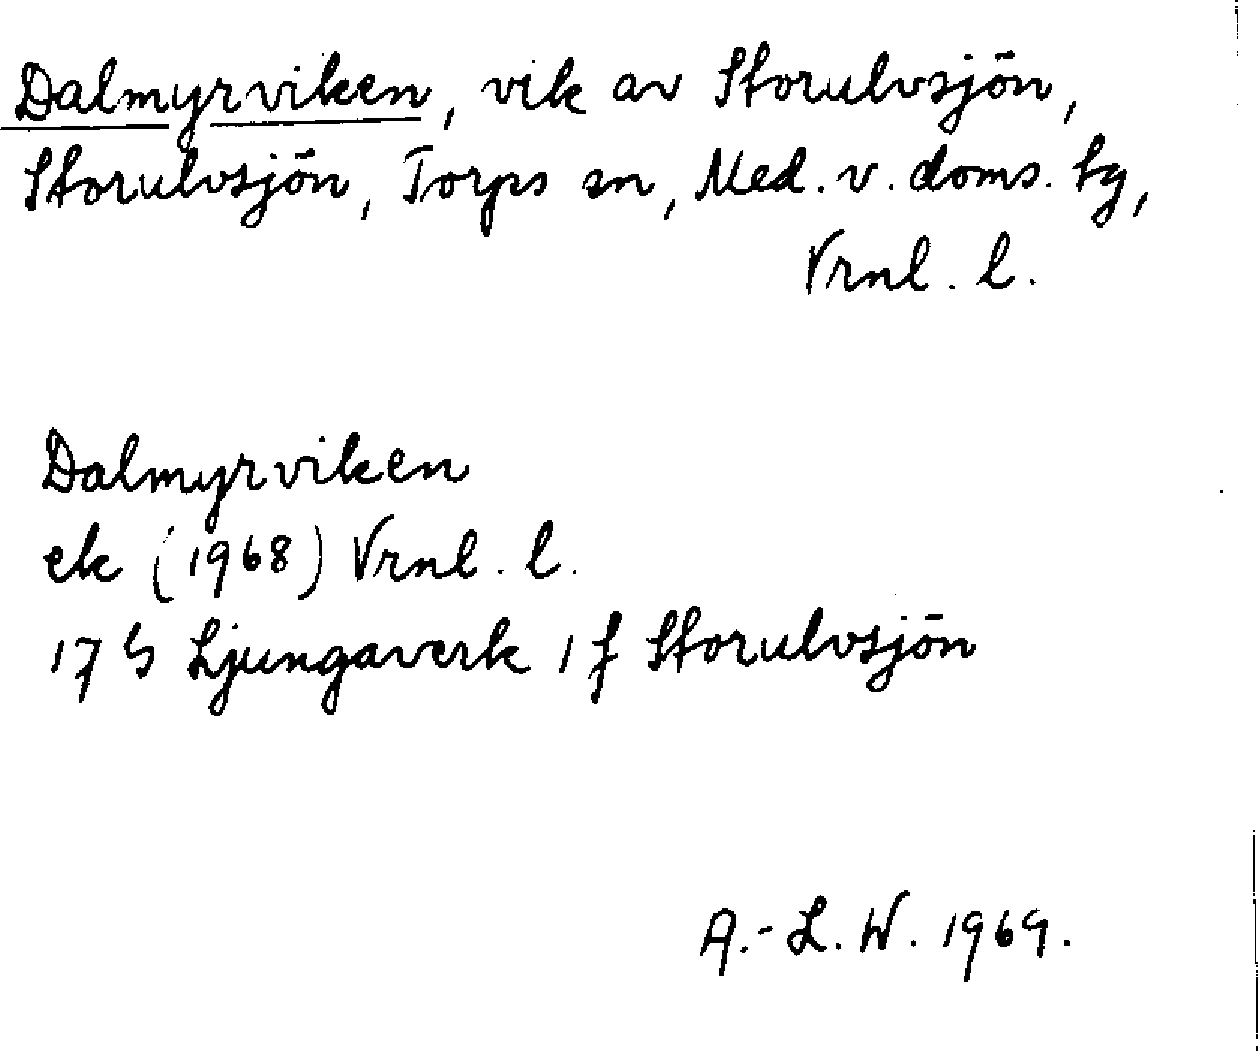 Dalmyrviken, vik av Storulvsjön,
Storulvsjön, Torps sn, Med. v. doms. tg,
Vrnl. l.
Dalmyrviken
ek (1968) Vrnl. l.
17 G Ljungaverk 1 f Storulvsjön
A.-L. W. 1969.